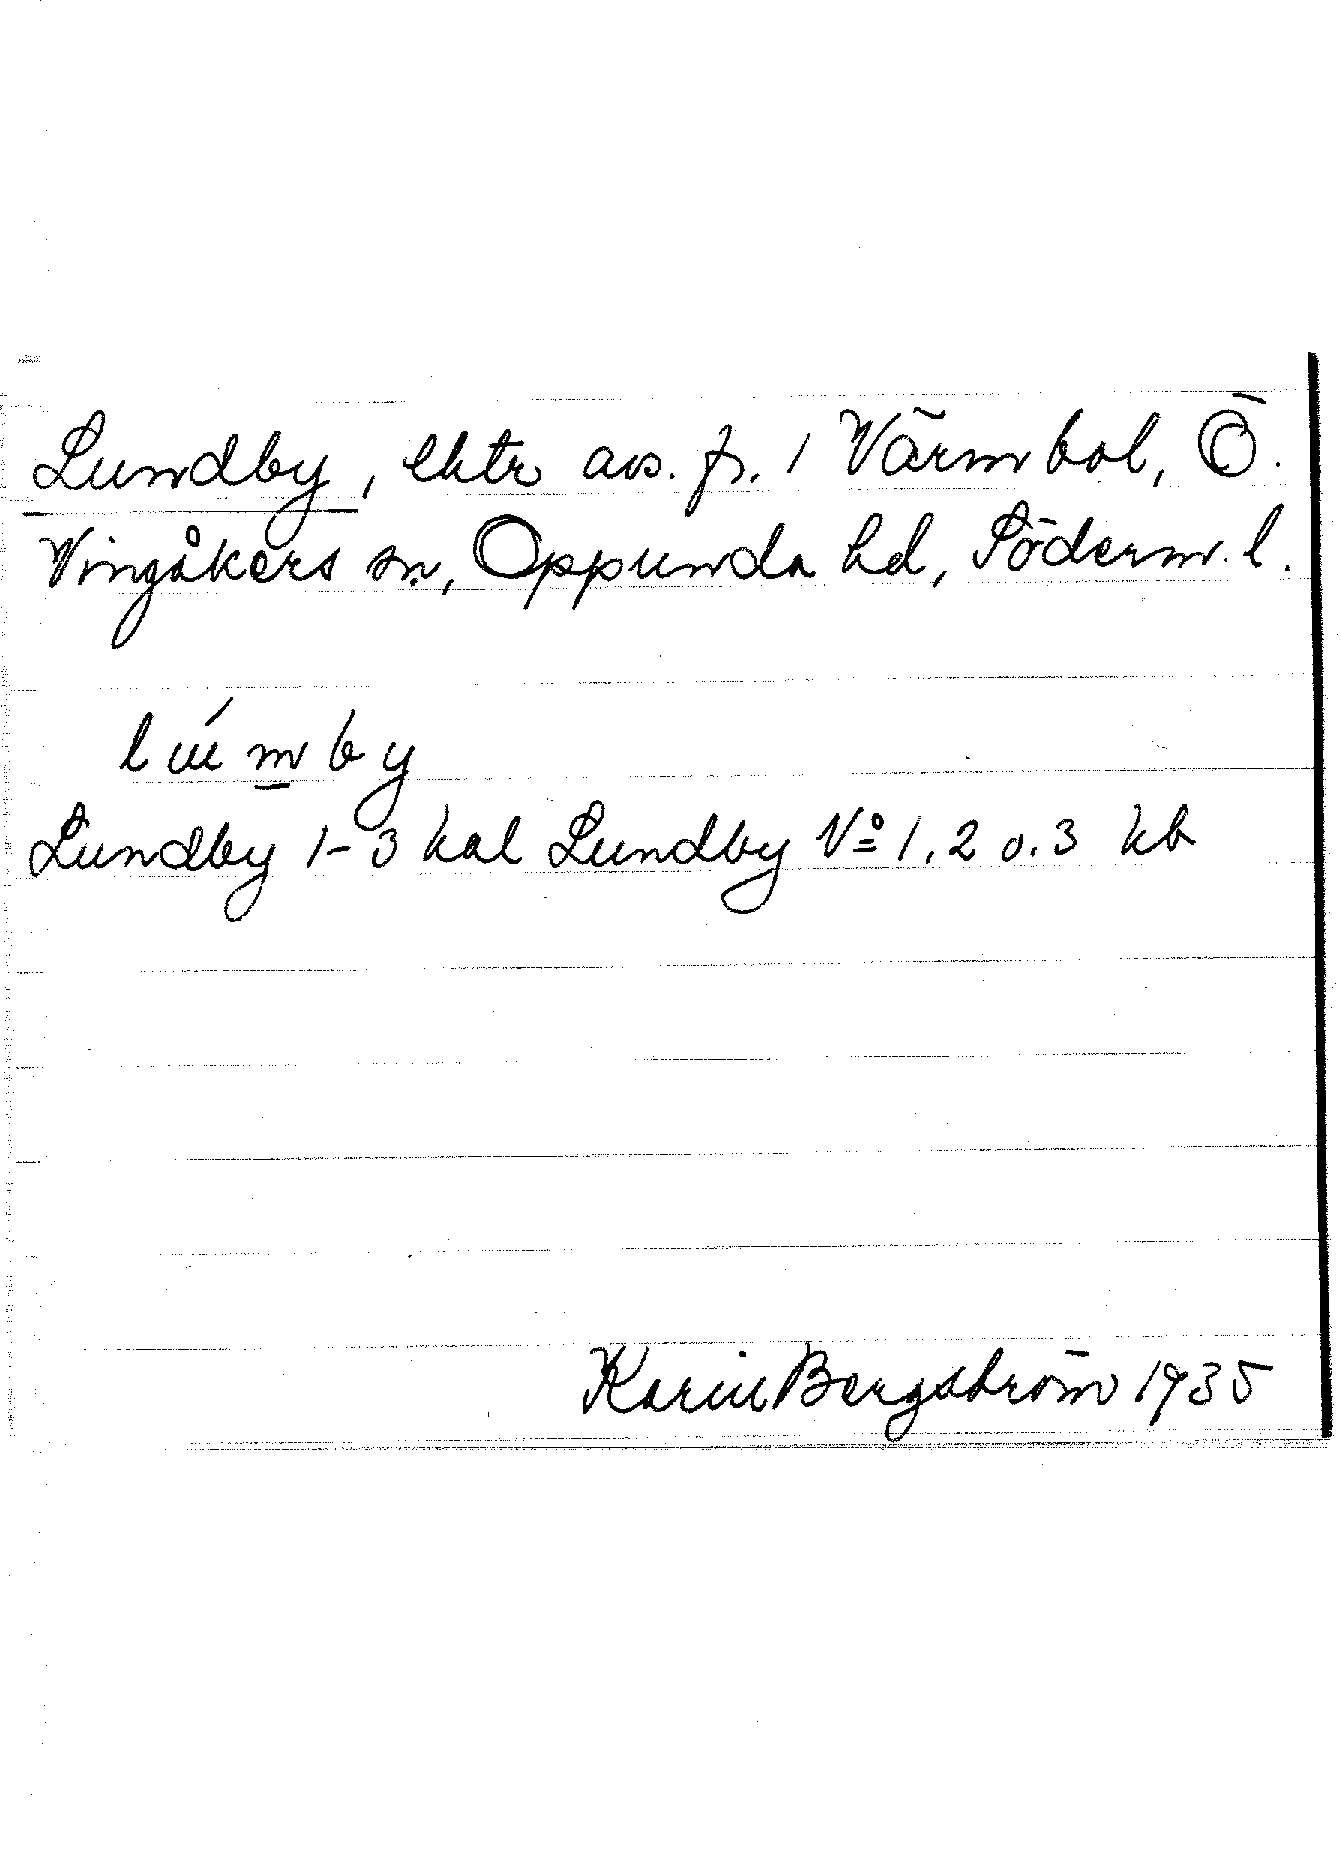 Lundby, lhtr avs. fr. 1 Värmbol, Ö.
Vingåkers sn, Oppunda hd, Söderm. l.
lúmby
Lundby 1-3 kal Lundby No 1, 2 o. 3 kb
Karin Bergström 1935